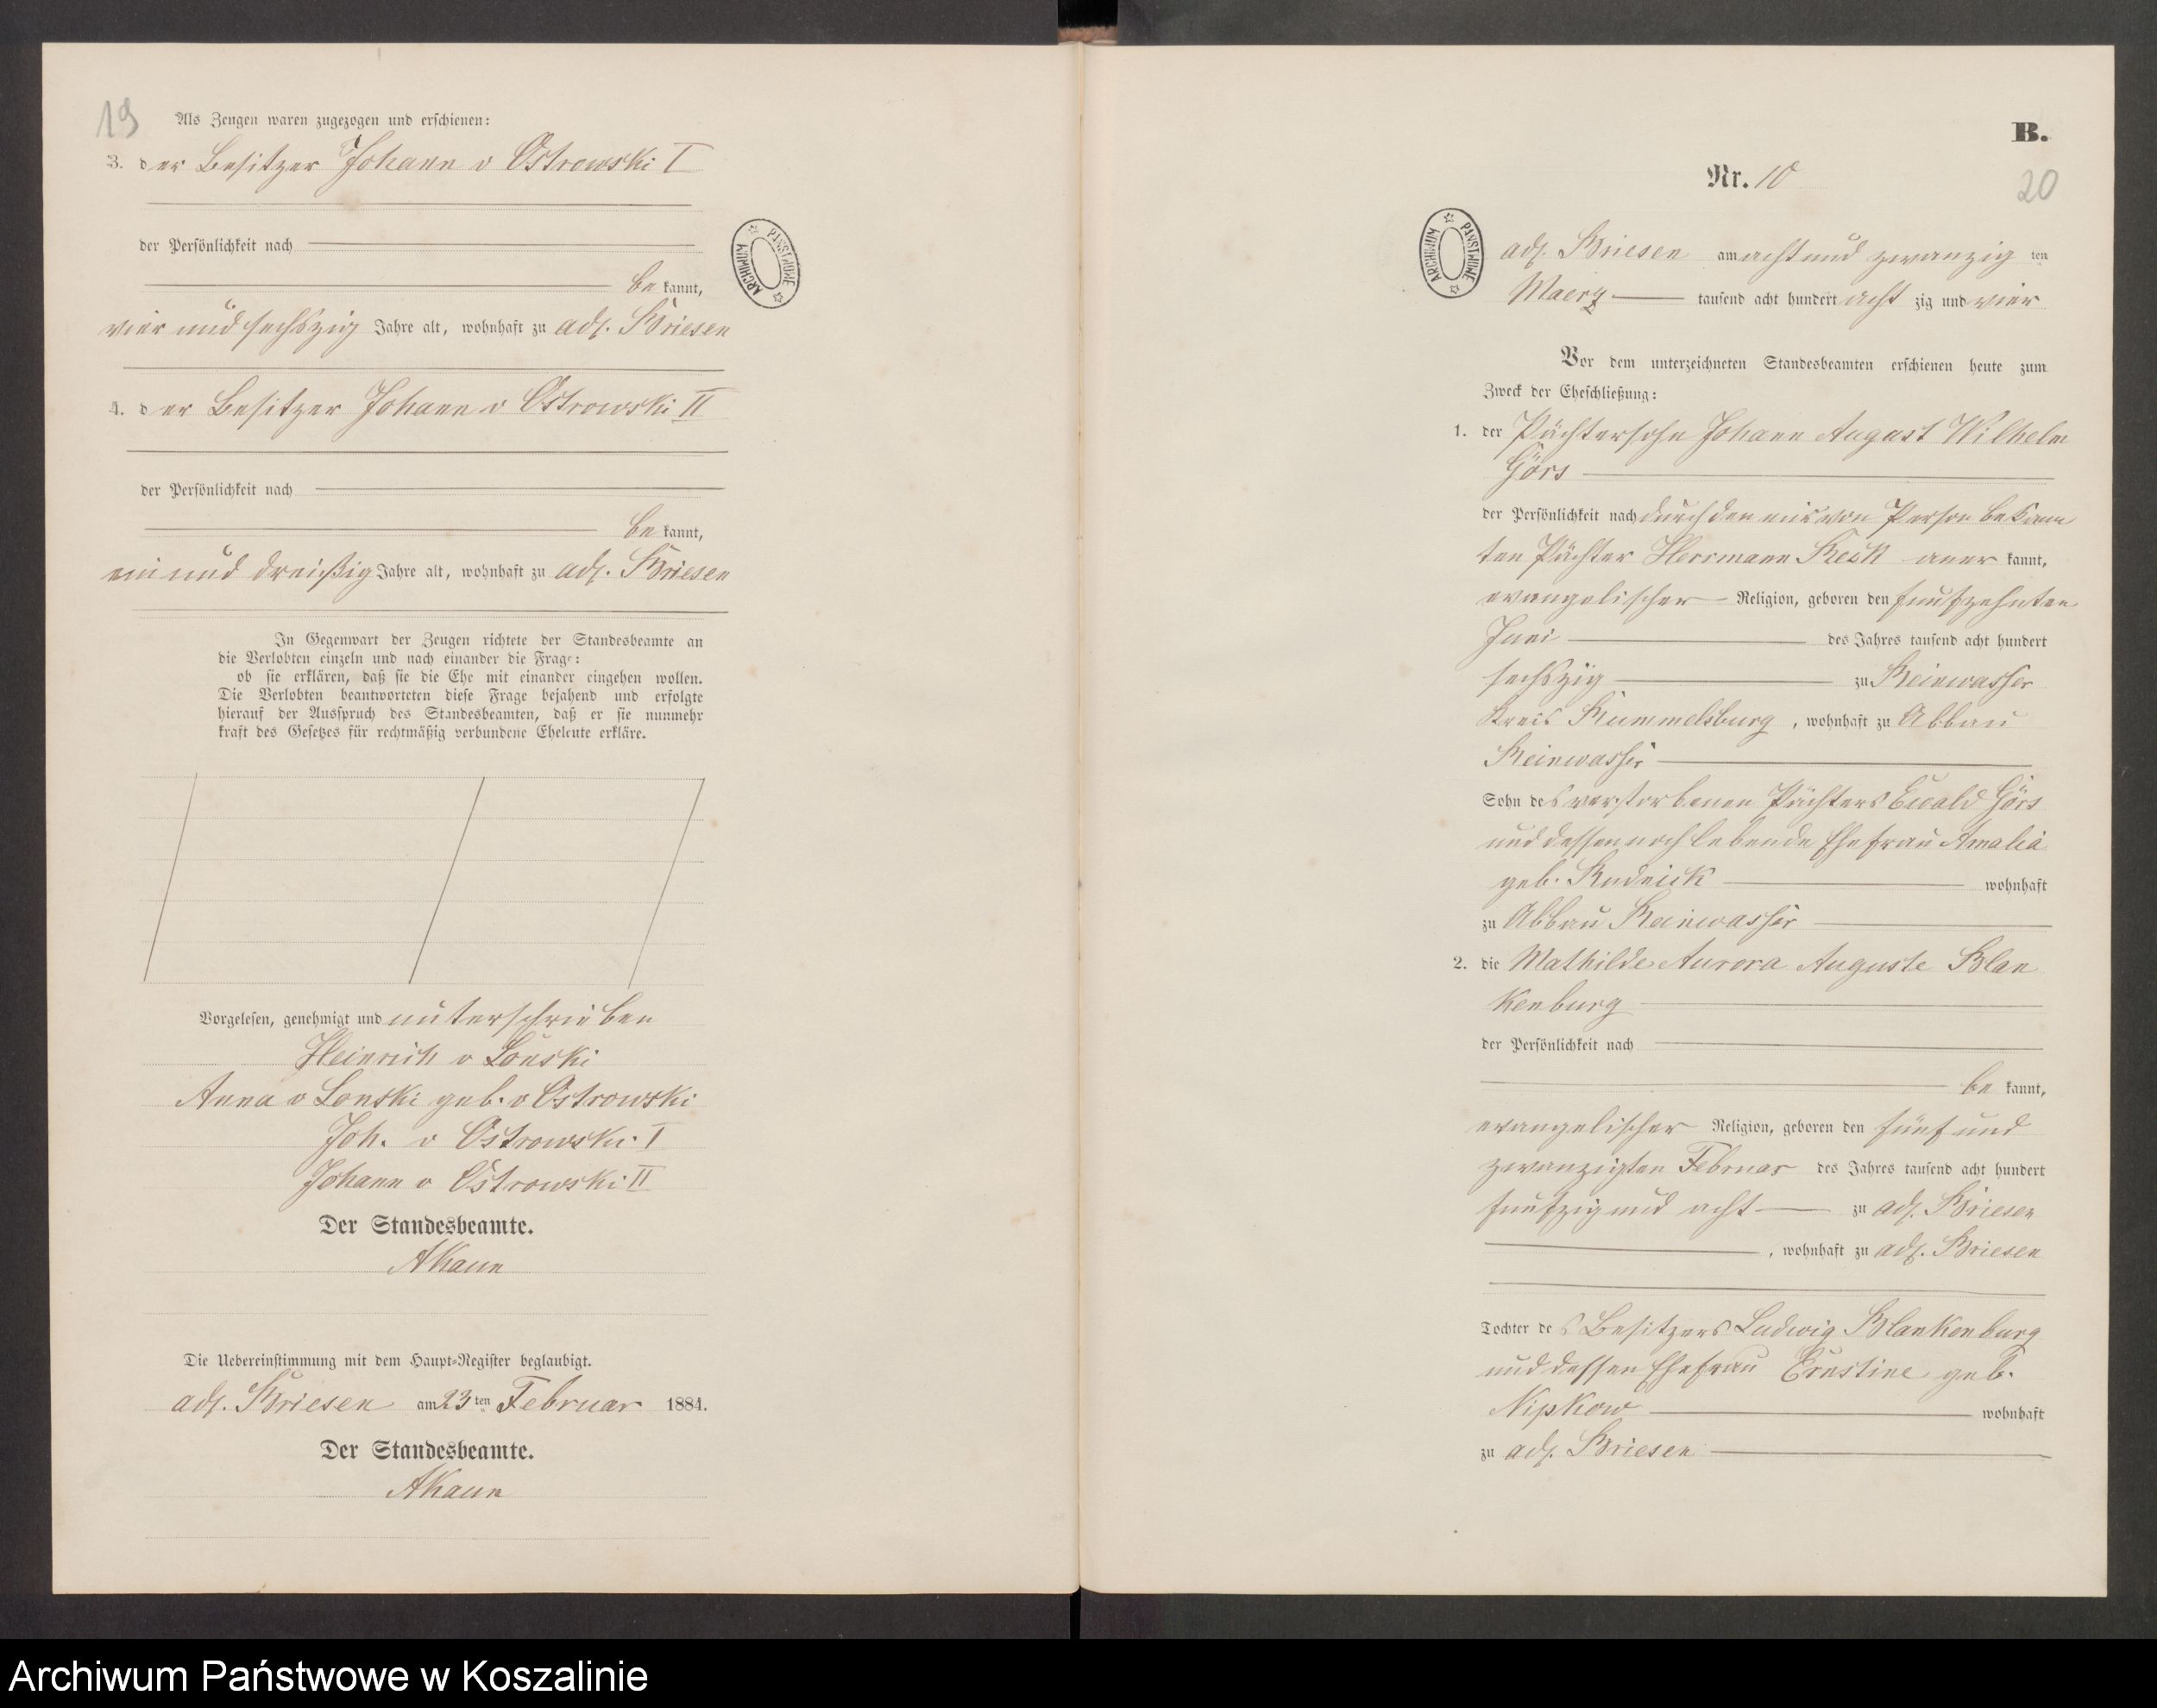 19
Als Zeugen waren zugezogen und erschienen:
3. der Besitzer Johann v Ostrowski I
der Persönlichkeit nach
be kannt,
vier und sechszig Jahre alt, wohnhaft zu adl. Briesen
4. der Besitzer Johann v Ostrowski II
der Persönlichkeit nach
be kannt,
ein und dreißig Jahre alt, wohnhaft zu adl. Briesen
In Gegenwart der Zeugen richtete der Standesbeamte an
die Verlobten einzeln und nach einander die Frage:
ob sie erklären, daß sie die Ehe mit einander eingehen wollen.
Die Verlobten beantworteten diese Frage bejahend und erfolgte
hierauf der Ausspruch des Standesbeamten, daß er sie nunmehr
kraft des Gesetzes für rechtmäßig verbundene Eheleute erkläre.
Vorgelesen, genehmigt und unterschrieben
Heinrich v Lonski
Anna v Lonski geb. v Ostrowski
Joh. v Ostrowski I
Johann v Ostrowski II
Der Standesbeamte.
AKaun
Die Uebereinstimmung mit dem Haupt-Register beglaubigt.
adl. Briesen am 23 ten Februar 1884.
Der Standesbeamte.
AKaun
ARCHIWUM PAŃSTWOWE
B.
Nr. 10
20
ARCHIWUM PAŃSTWOWE
adl. Briesen am acht und zwanzig ten
Maerz tausend acht hundert acht zig und vier
Vor dem unterzeichneten Standesbeamten erschienen heute zum
Zweck der Eheschließung:
1. der Pächtersohn Johann August Wilhelm
Görs
der Persönlichkeit nach durch den mir von Person bekann
ten Pächter Herrmann aner kannt,
evangelischer Religion, geboren den funfzehnten
Juni des Jahres tausend acht hundert
sechszig zu Reinwasser
Kreis Rummelsburg, wohnhaft zu Abbau
Reinwasser
Sohn des verstorbenen Pächters Ewald Görs
und dessen noch lebende Ehefrau Amalia
geb. Rudnick wohnhaft
zu Abbau Reinwasser
2. die Mathilde Aurora Auguste Blan
kenburg
der Persönlichkeit nach
be kannt,
evangelischer Religion, geboren den fünf und
zwanzigten Februar des Jahres tausend acht hundert
funfzig und acht zu adl. Briesen
, wohnhaft zu adl. Briesen
Tochter des Besitzers Ludwig Blankenburg
und dessen Ehefrau Ernstine geb.
Nipkow wohnhaft
zu adl. Briesen
Archiwum Państwowe w Koszalinie